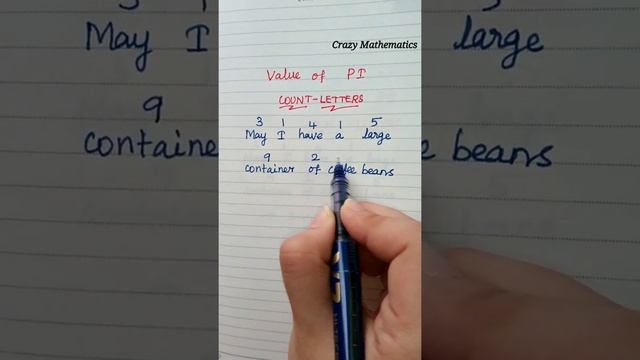 Crazy Mathematics
Value of PI
COUNT-LETTERS
3 1 4 1 5
May I have a large
9 2
container of coffee beans
May I
large
9
container
beans